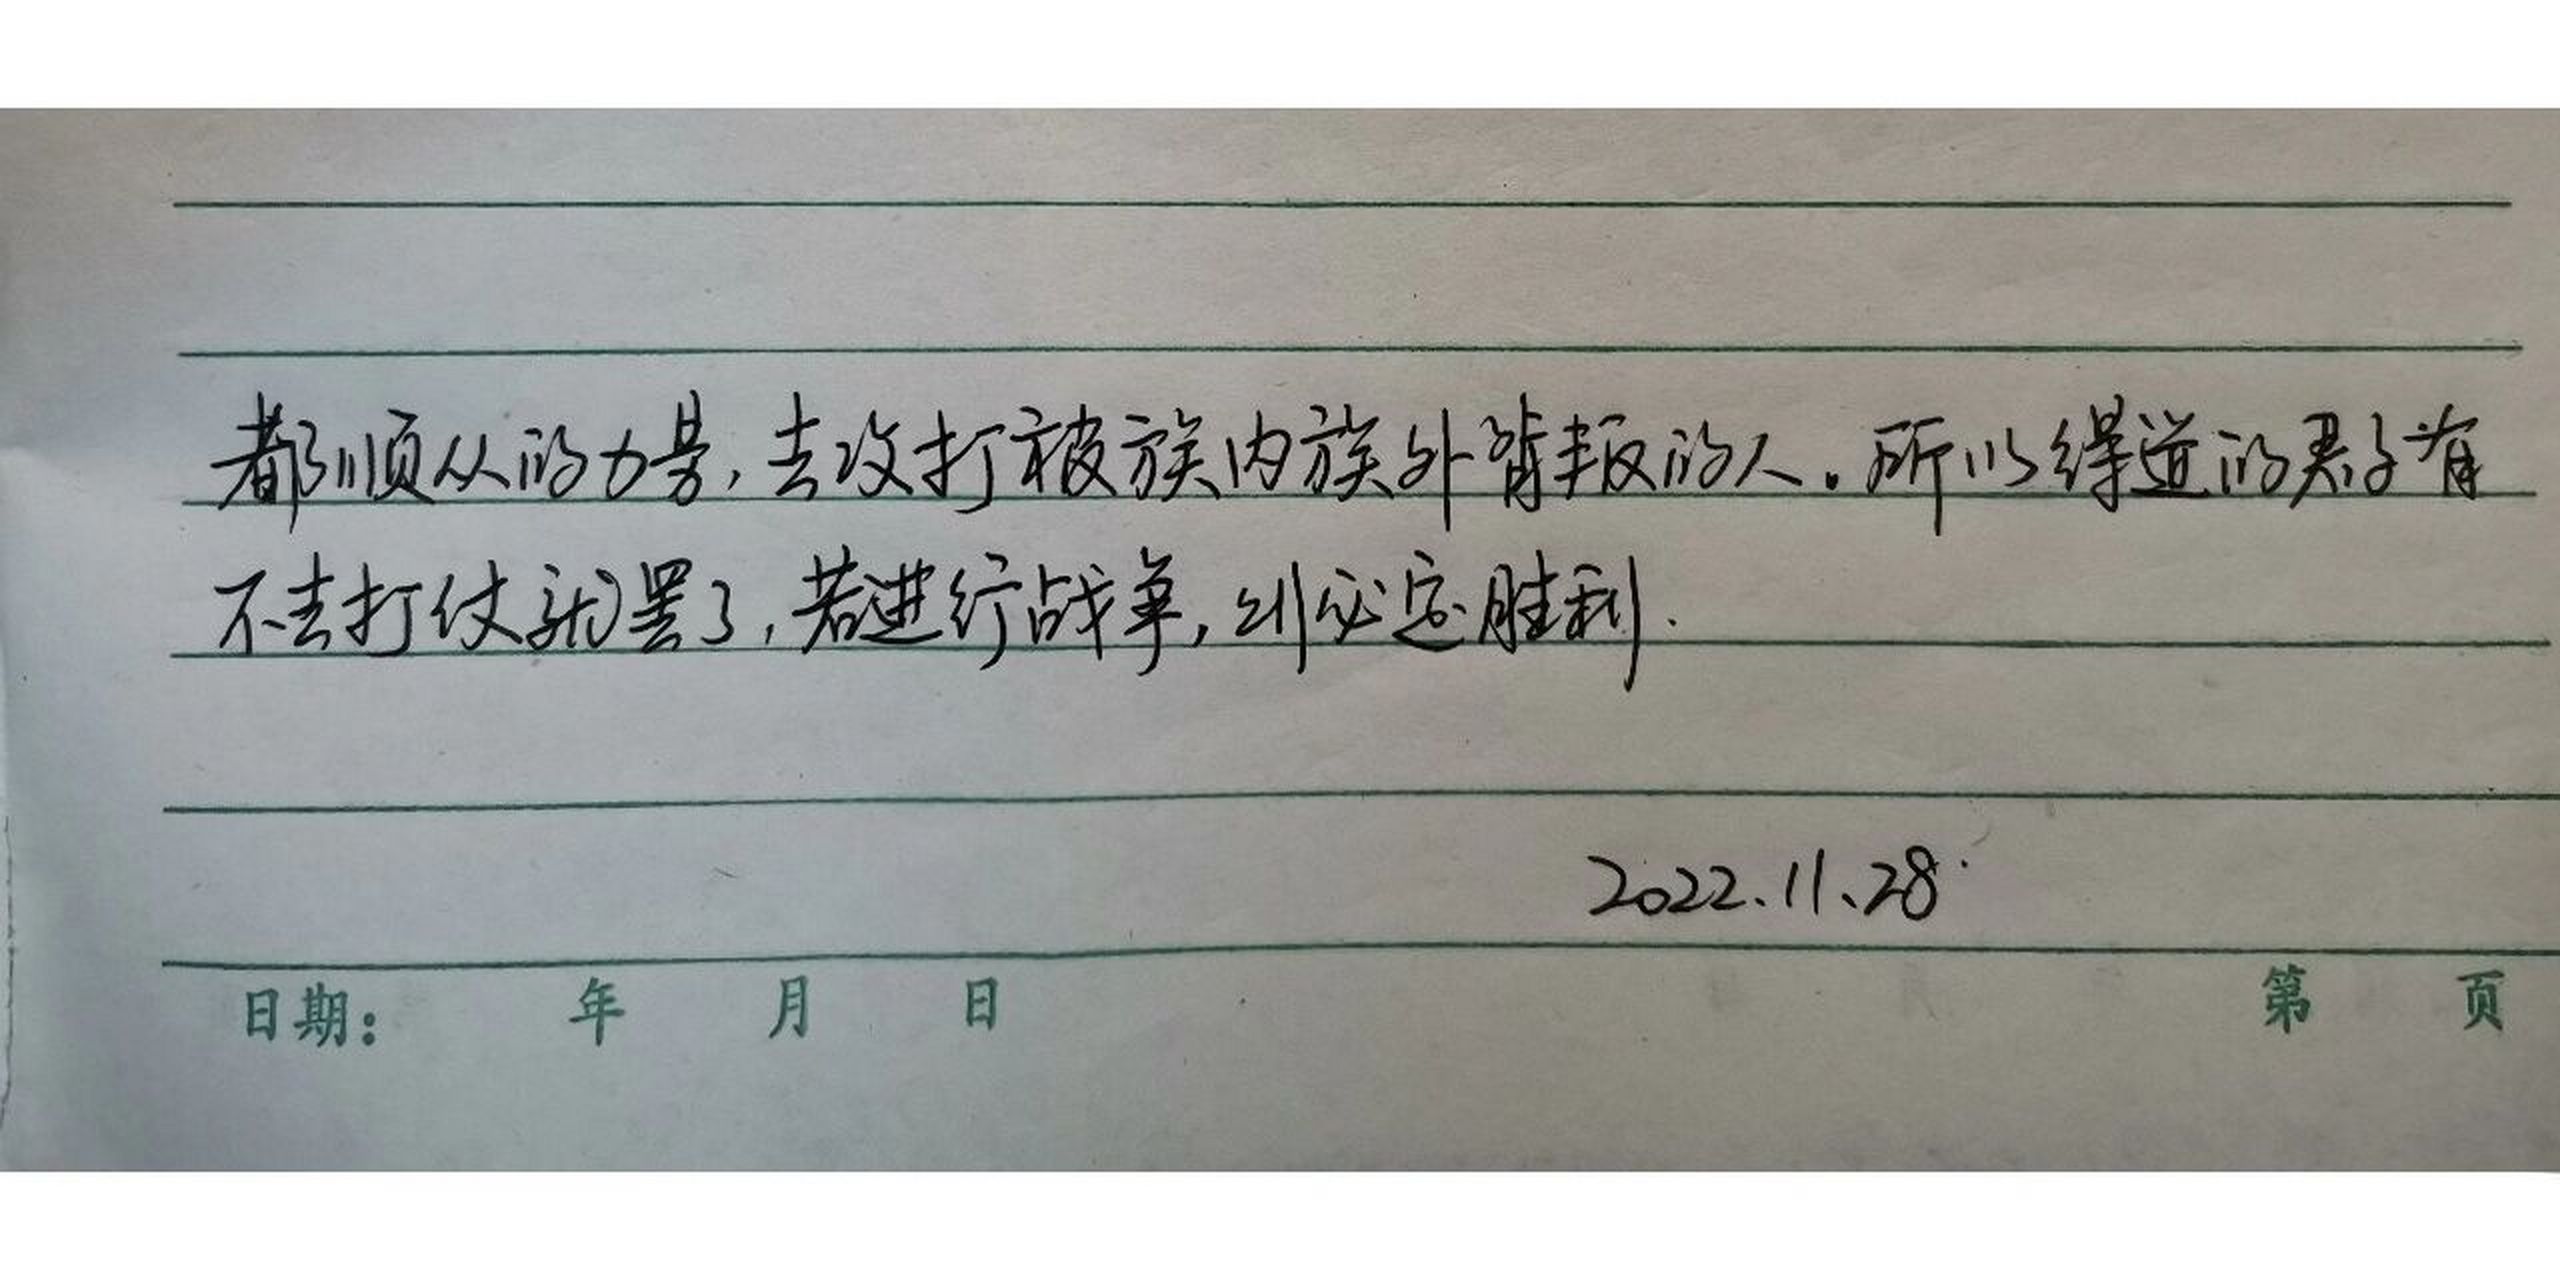 都顺从的力量,去攻打被族内族外背叛的人。所以得道的君子有
不去打仗就罢了,若进行战争,则必定胜利.
2022.11.28.
日期: 年 月 日 第 页